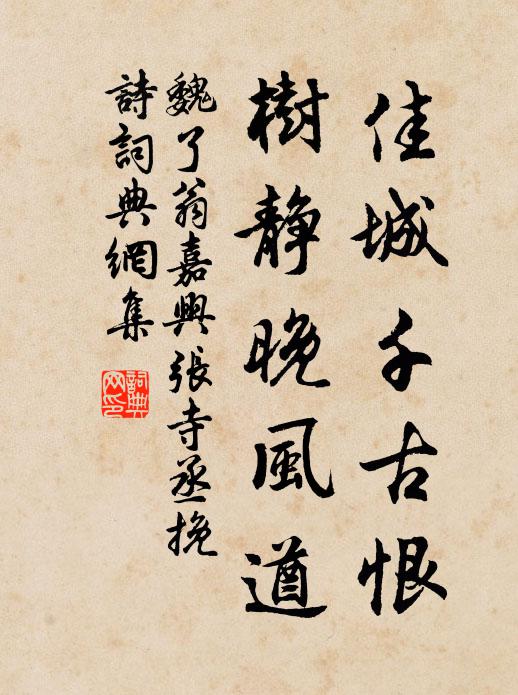 佳城千古恨
樹静晚風遒
魏了翁嘉興張寺丞挽
詩詞典網集
詞典网印